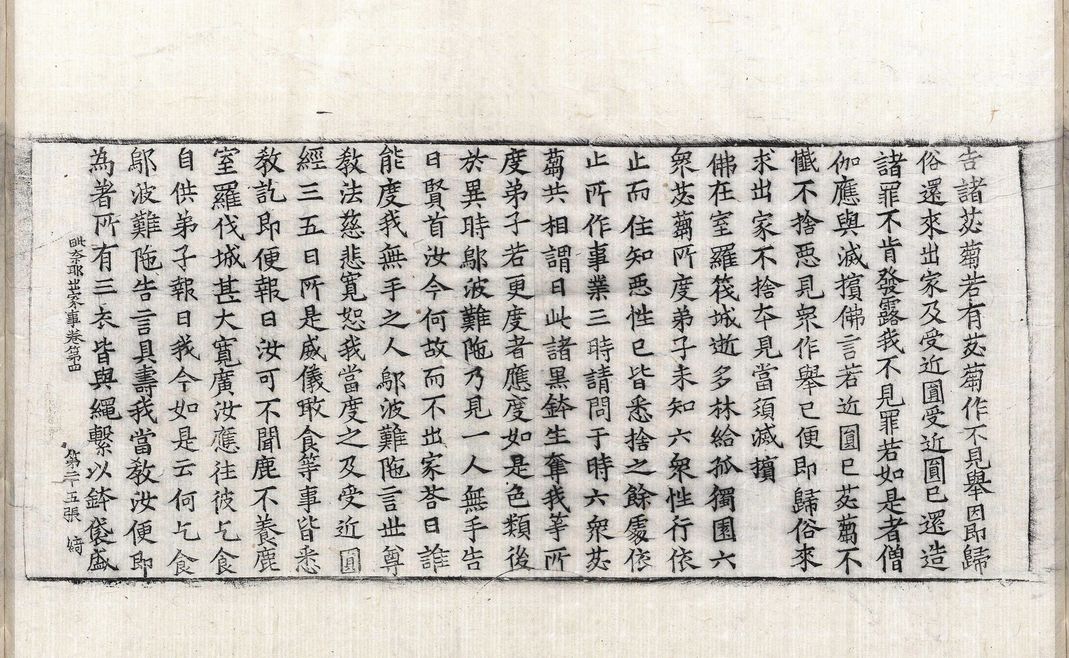 告諸苾蒭若有苾蒭作不見舉因即歸
俗還來出家及受近圓受近圓已還造
諸罪不肯發露我不見罪若如是者僧
伽應與滅擯佛言若近圓已苾蒭不
懺不捨惡見衆作舉已便即歸俗來
求出家不捨夲見當須滅擯
佛在室羅筏城逝多林給孤獨園六
衆苾蒭所度弟子未知六衆性行依
止而住知惡性已皆悉捨之餘處依
止所作事業三時請問于時六衆苾
蒭共相謂曰此諸黑鉢生奪我等所
度弟子若更度者應度如是色類後
於異時鄔波難陁乃見一人無手告
曰賢首汝今何故而不出家荅曰誰
能度我無手之人鄔波難陁言世尊
教法慈悲寬恕我當度之及受近圓
經三五日所是威儀噉食等事皆悉
教訖即便報曰汝可不聞鹿不養鹿
室羅伐城甚大寬廣汝應往彼乞食
自供弟子報曰我今如是云何乞食
鄔波難陁告言具壽我當教汝便即
為著所有三衣皆與繩繫以鉢袋盛
毗奈耶出家事卷第四 第二十五張